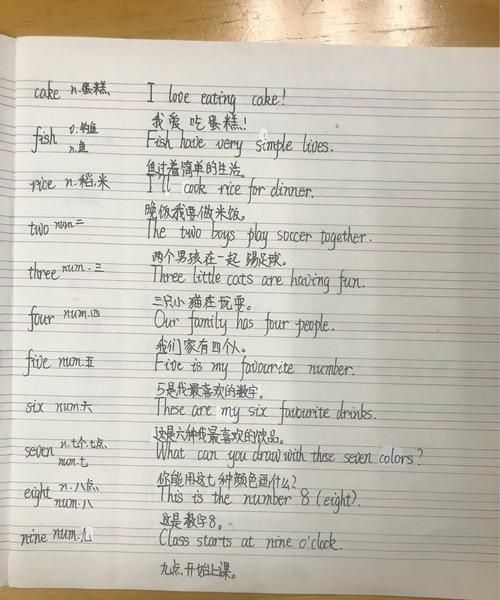 cake n.蛋糕 I love eating cake!
我爱吃蛋糕!
fish v.钓鱼 n.鱼 Fish have very simple lives.
鱼过着简单的生活。
rice n.稻,米 I'll cook rice for dinner.
晚饭我要做米饭。
two num 二 The two boys play soccer together.
两个男孩在一起踢足球。
three num.三 Three little cats are having fun.
三只小猫在玩耍。
four num.四 Our family has four people.
我们家有四个人。
five num.五 Five is my favourite number.
5是我最喜欢的数字。
six num.六 These are my six favourite drinks.
这是六种我最喜欢的饮品。
seven n.七个,七点 num.七 What can you draw with these seven colors?
你能用这七种颜色画什么?
eight n.八点 num.八 This is the number 8 (eight).
这是数字8。
nine num.九 Class starts at nine o'clock.
九点开始上课。